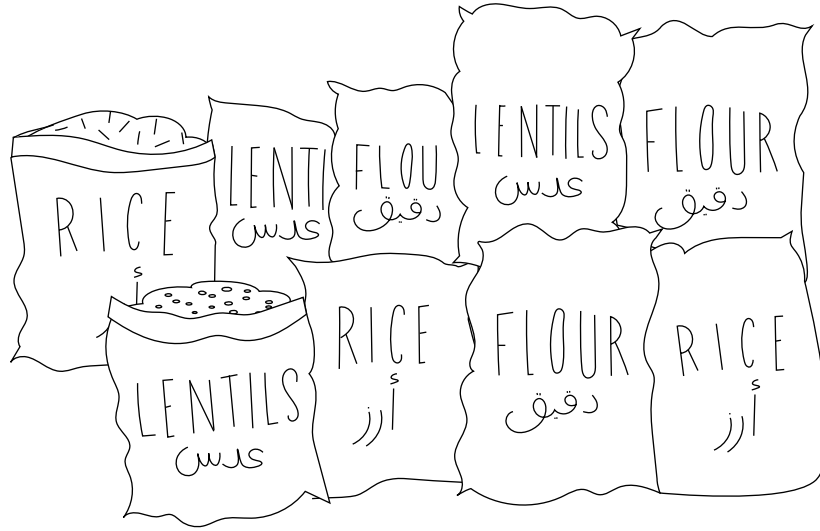 RICE
أ
LENTI
عدس
FLOU
دقيق
LENTILS
عدس
FLOUR
دقيق
LENTILS
عدس
RICE
أرز
FLOUR
دقيق
RICE
أرز